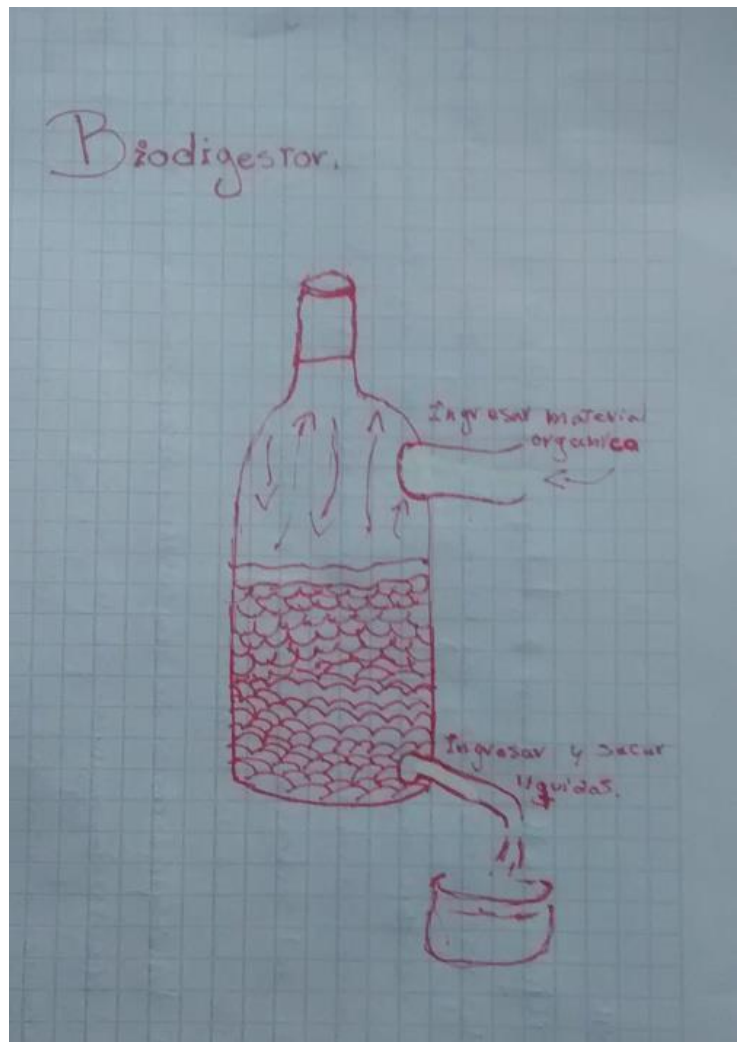 Biodigestor.
Ingresar material
organica
Ingresar y sacar
liquidas.